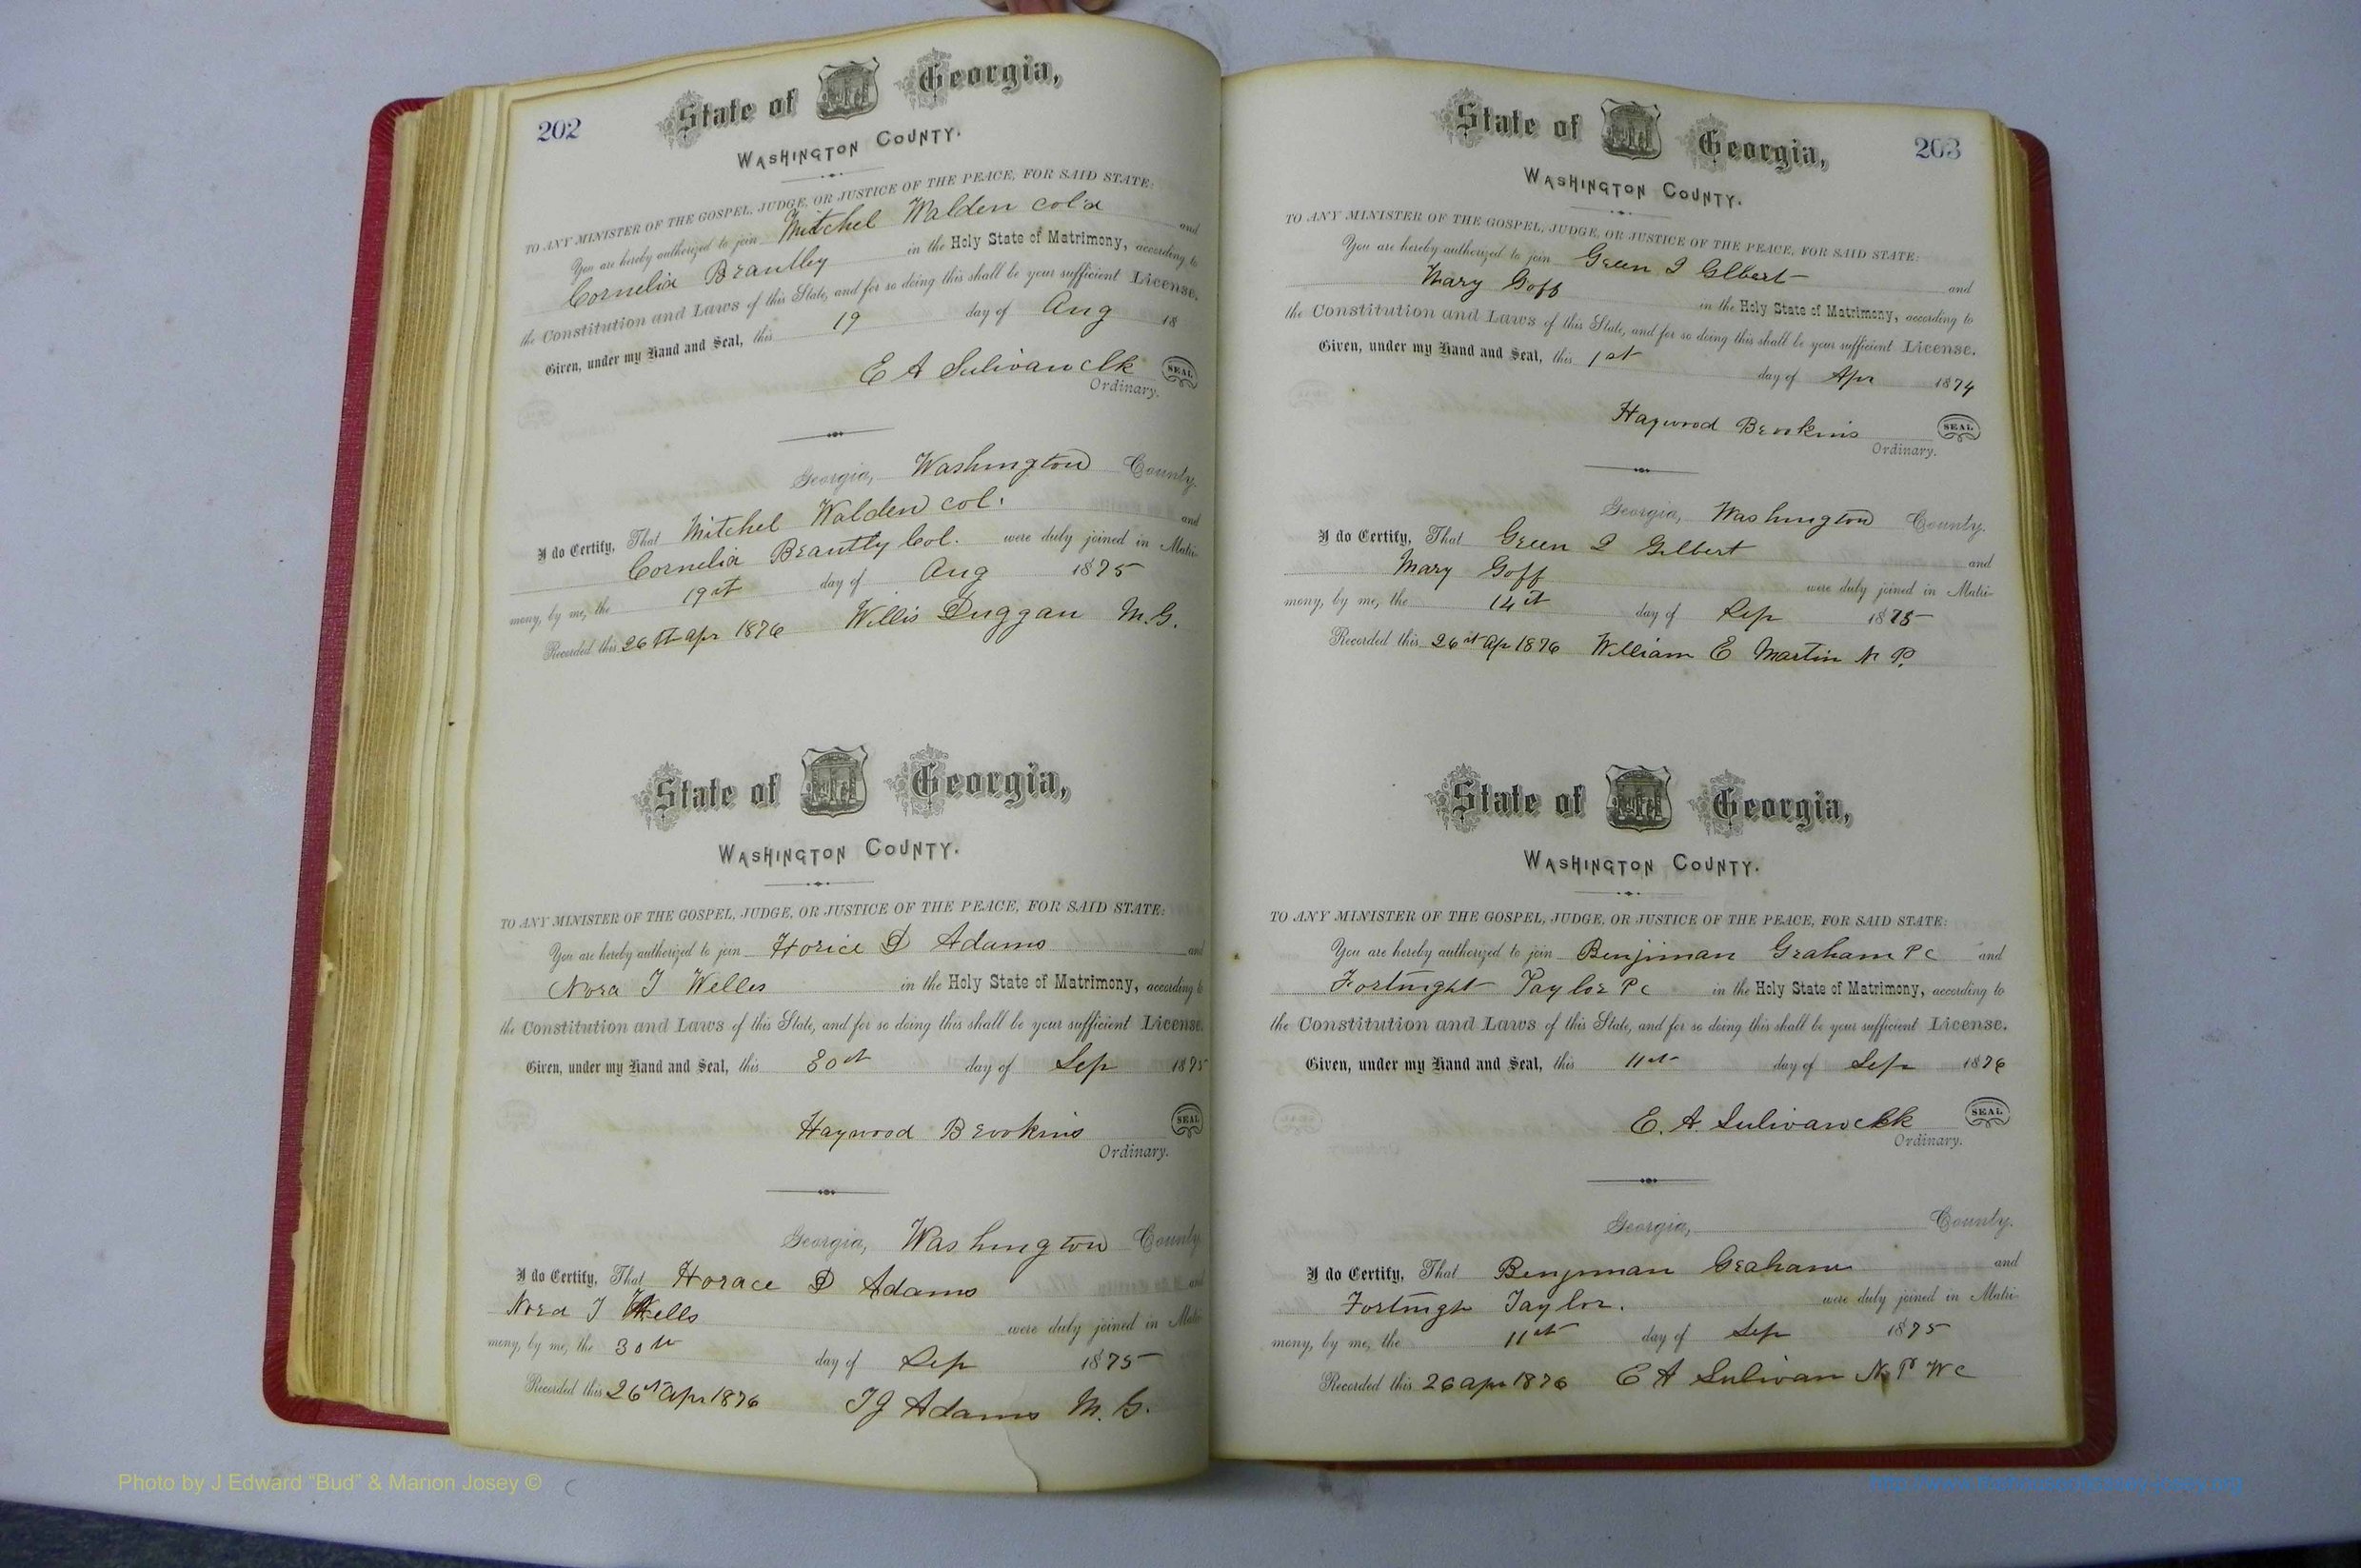 202
State of Georgia,
WASHINGTON COUNTY.
TO ANY MINISTER OF THE GOSPEL, JUDGE, OR JUSTICE OF THE PEACE, FOR SAID STATE:
You are hereby authorized to join Mitchel Walden col'd and
Cornelia Brantley in the Holy State of Matrimony, according to
the Constitution and Laws of this State, and for so doing this shall be your sufficient License.
Given, under my Hand and Seal, this 19 day of Aug 18
E A Sulivan Clk SEAL
Ordinary.
Georgia, Washington County.
I do Certify, That Mitchel Walden col. and
Cornelia Brantly Col. were duly joined in Matri-
mony, by me, the 19st day of Aug 1875
Recorded this 26th apr 1876 Willis Duggan M.G.
State of Georgia,
WASHINGTON COUNTY.
TO ANY MINISTER OF THE GOSPEL, JUDGE, OR JUSTICE OF THE PEACE, FOR SAID STATE:
You are hereby authorized to join Horice D Adams and
Nora J Welles in the Holy State of Matrimony, according to
the Constitution and Laws of this State, and for so doing this shall be your sufficient License.
Given, under my Hand and Seal, this 30st day of Sep 1875
Haywood Brookins SEAL
Ordinary.
Georgia, Washington County
I do Certify, That Horace D Adams and
Nora J Wells were duly joined in Matri
mony, by me, the 30th day of Sep 1875
Recorded this 26st Apr 1876 TJ Adams M. G.
State of Georgia, 203
WASHINGTON COUNTY.
TO ANY MINISTER OF THE GOSPEL, JUDGE, OR JUSTICE OF THE PEACE, FOR SAID STATE:
You are hereby authorized to join Green Q Gilbert and
Mary Goff in the Holy State of Matrimony, according to
the Constitution and Laws of this State, and for so doing this shall be your sufficient License.
Given, under my Hand and Seal, this 1st day of Apr 1874
Haywood Brookins SEAL
Ordinary.
Georgia, Washington County.
I do Certify, That Green Q Gilbert and
Mary Goff were duly joined in Matri-
mony, by me, the 14st day of Sep 1875
Recorded this 26st Apr 1876 William E Martin N P.
State of Georgia,
WASHINGTON COUNTY.
TO ANY MINISTER OF THE GOSPEL, JUDGE, OR JUSTICE OF THE PEACE, FOR SAID STATE:
You are hereby authorized to join Benjiman Graham Pc and
Fortnight Taylor Pc in the Holy State of Matrimony, according to
the Constitution and Laws of this State, and for so doing this shall be your sufficient License.
Given, under my Hand and Seal, this 11st day of Sep 1876
E. A. Sulivan Clk SEAL
Ordinary.
Georgia, County.
I do Certify, That Benjiman Graham and
Fortnigh Taylor. were duly joined in Matri-
mony, by me, the 11st day of Sep 1875
Recorded this 26 apr 1876 E A Sulivan N P W C
Photo by J Edward “Bud” & Marion Josey ©